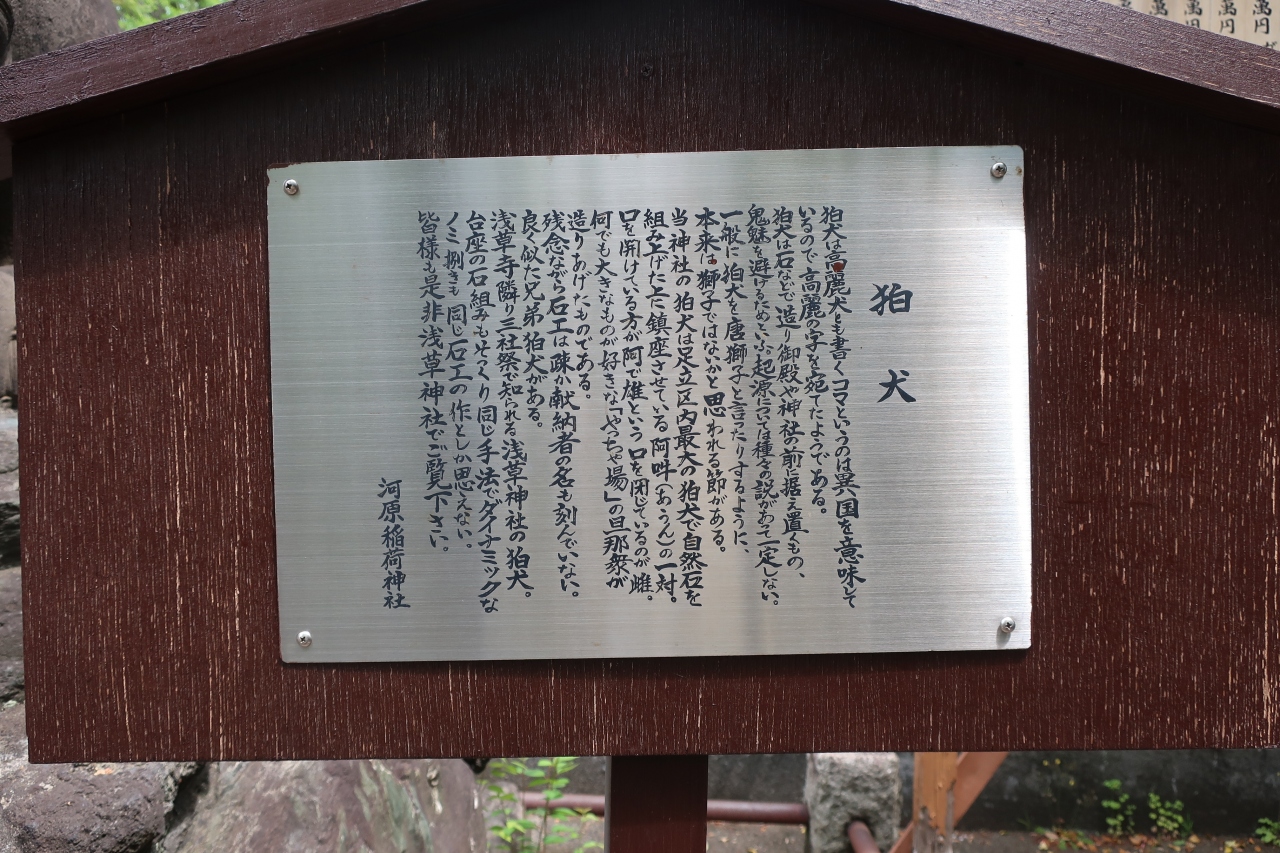 狛犬
狛犬は高麗犬とも書くコマというのは異国を意味して
いるので高麗の字を宛てたようである。
狛犬は石などで造り御殿や神社の前に据え置くもの、
鬼魅を避けるためといふ。起源については種々の説があって一定しない。
一般に狛犬を唐獅子と言ったりするように、
本来は獅子ではなかと思われる節がある。
当神社の狛犬は足立区内最大の狛犬で自然石を
組み上げた上に鎮座させている阿吽(あうん)の一対。
口を開けている方が阿で雄という口を閉じているのが雌。
何でも大きなものが好きな「やっちゃ場」の旦那衆が
造りあげたものである。
残念ながら石工は疎か献納者の名も刻んでいない。
良く似た兄弟狛犬がある。
浅草寺隣り三社祭で知られる浅草神社の狛犬。
台座の石組みもそっくり同じ手法でダイナミックな
ノミ捌きも同じ石工の作としか思えない。
皆様も是非浅草神社でご覧下さい。
河原稲荷神社
萬円
萬円
萬円